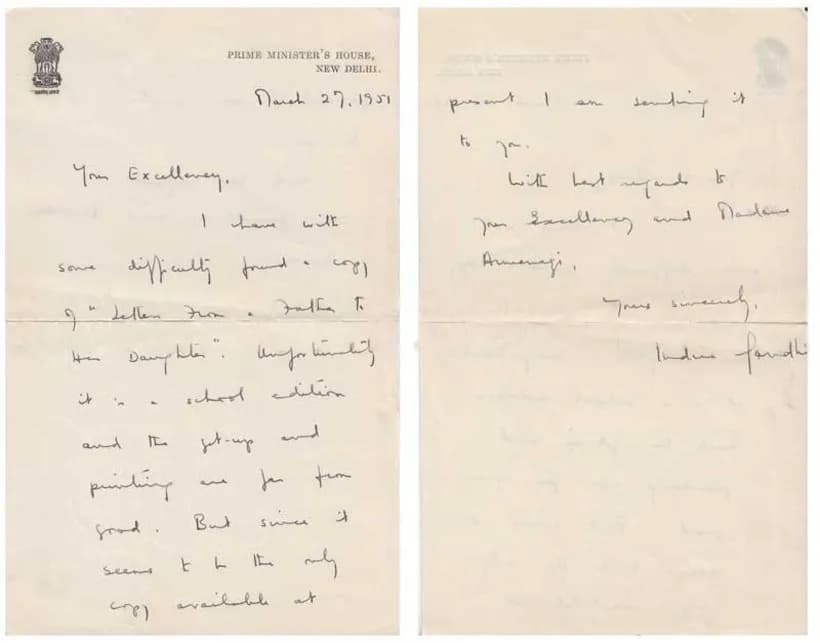 PRIME MINISTER'S HOUSE,
NEW DELHI.
March 27, 1951
Your Excellency,
I have with
some difficulty found a copy
of "Letters From a Father to
His Daughter". Unfortunately
it is a school edition
and the get-up and
printing are far from
good. But since it
seems to be the only
copy available at
present I am sending it
to you.
With best regards to
your Excellency and Madame
Yours sincerely,
Indira Gandhi